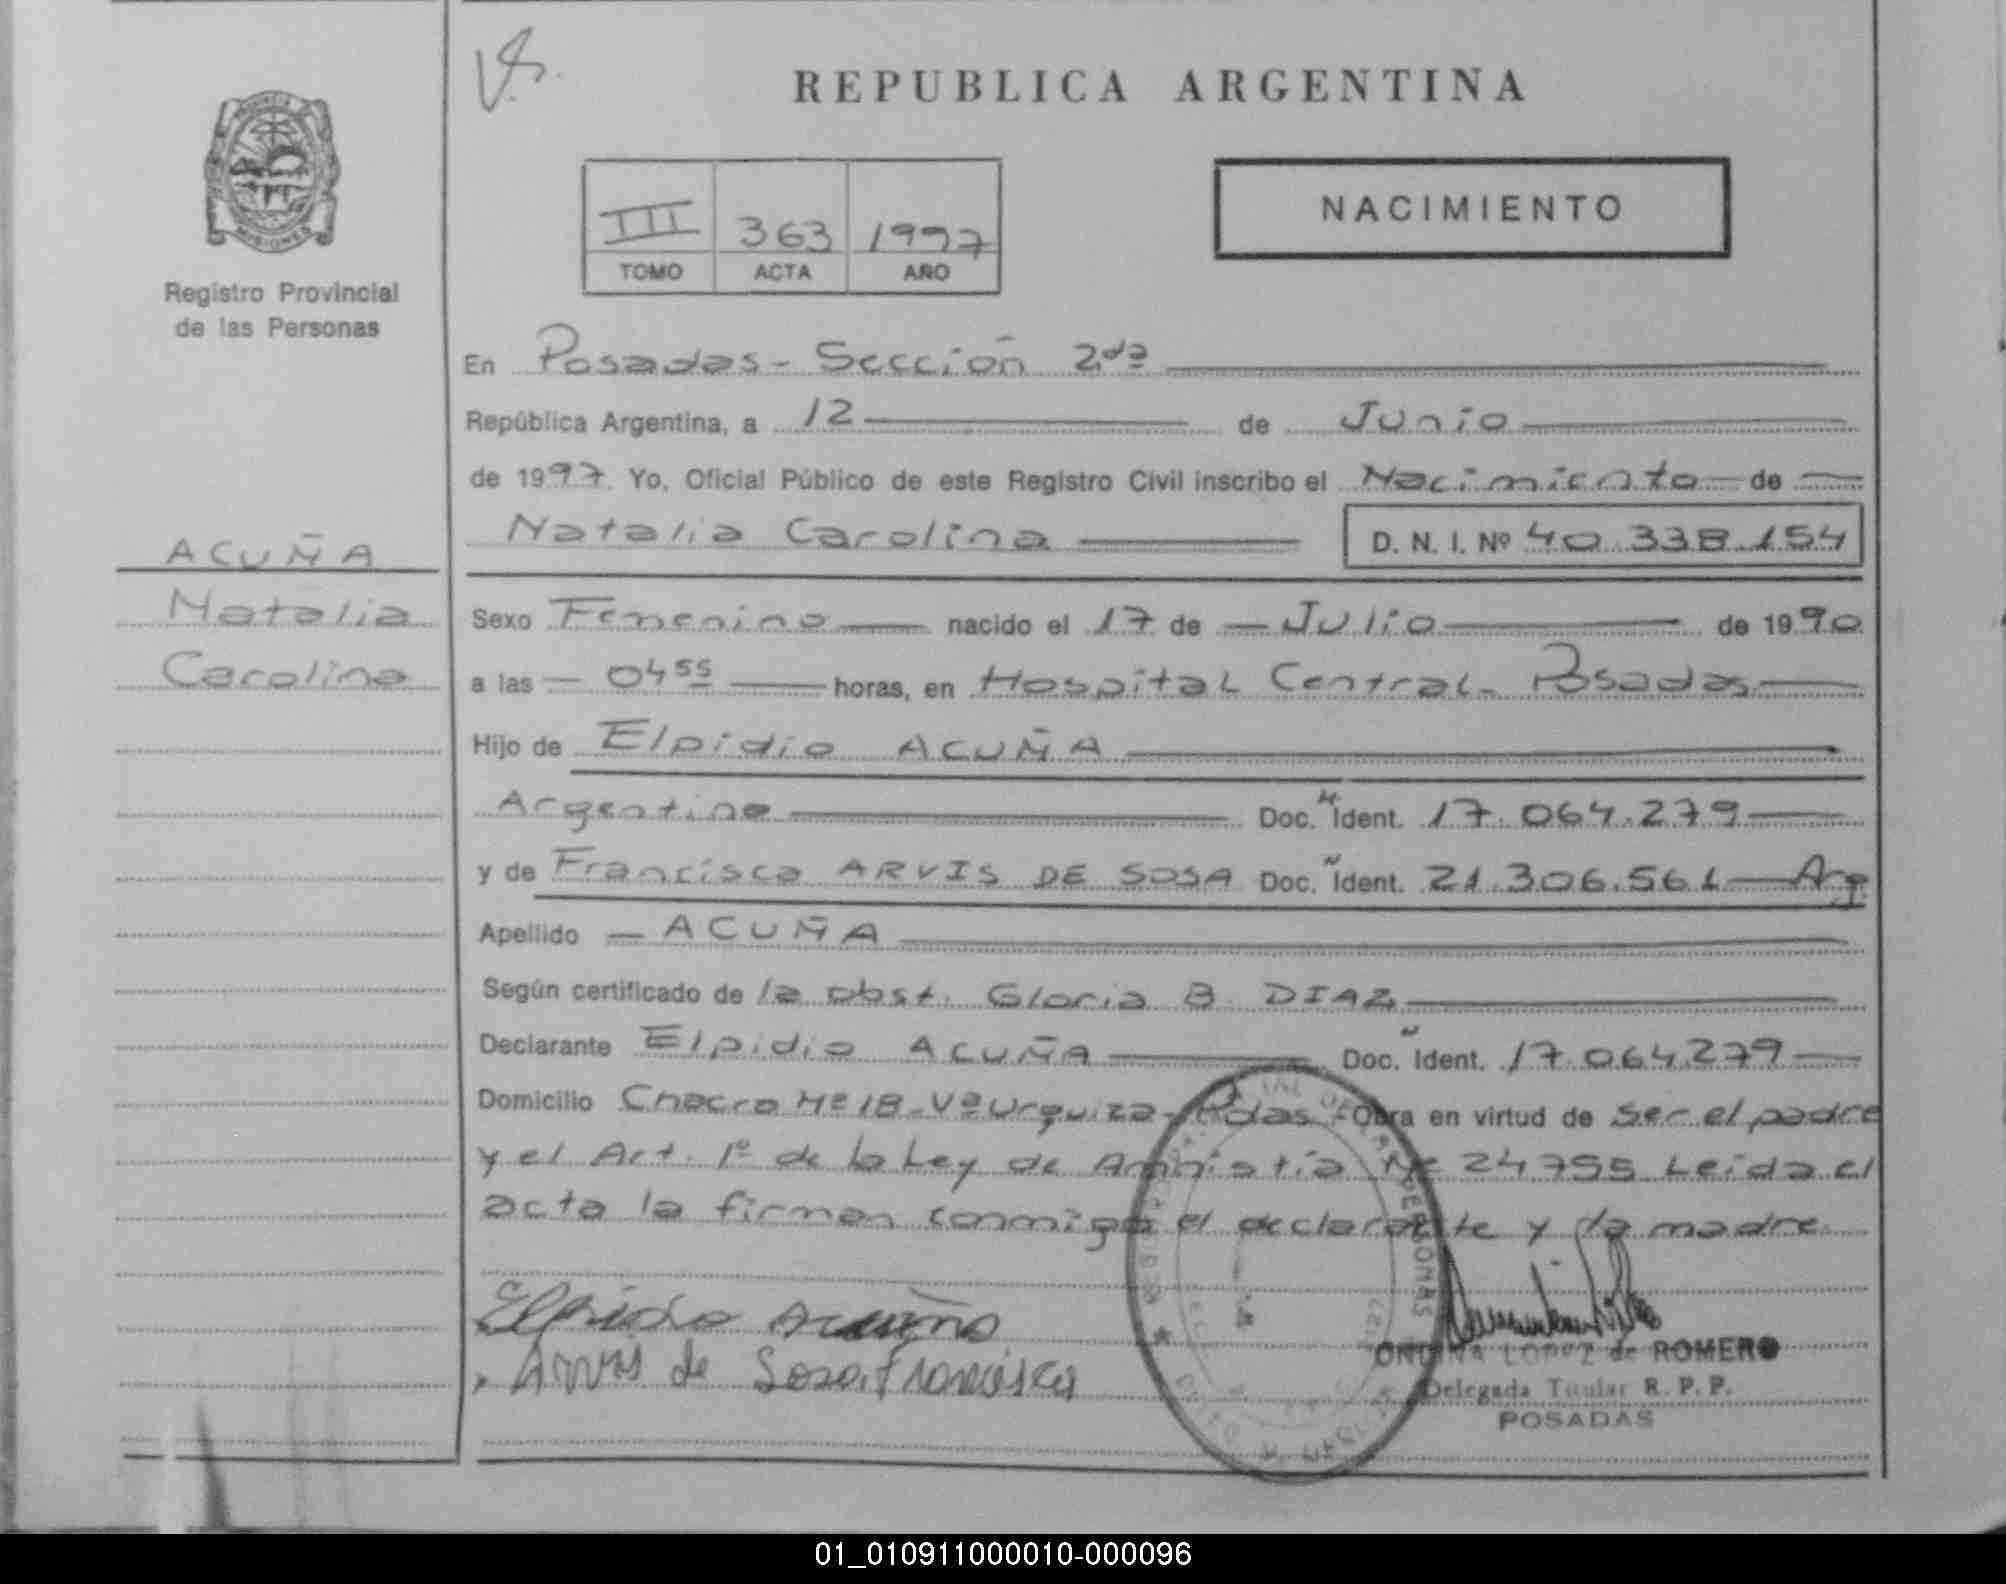 REPUBLICA ARGENTINA
PROVINCIA
MISIONES
Registro Provincial
de las Personas
III 363 1997
TOMO ACTA AÑO
NACIMIENTO
En Posadas - Sección 2da
República Argentina, a 12 de Junio
de 1997 Yo, Oficial Público de este Registro Civil inscribo el Nacimiento de
Natalia Carolina D. N. I. Nº 40.338.154
ACUÑA
Natalia
Carolina
Sexo Femenino nacido el 17 de Julio de 1990
a las 04 55 horas, en Hospital Central - Posadas
Hijo de Elpidio ACUÑA
Argentino Doc. Ident. 17.064.279
y de Francisca ARVIS DE SOSA Doc. Ident. 21.306.561 - Arg.
Apellido ACUÑA
Según certificado de la obst. Gloria B. DIAZ
Declarante Elpidio ACUÑA Doc. Ident. 17.064.279
Domicilio Chacra Nº 18 - Vª Urquiza - Pdas - Obra en virtud de ser el padre
y el Art. 1º de la Ley de Amnistía Nº 24755 Leída el
acta la firman conmigo el declarante y la madre
Elpidio Acuña
Arvis de Sosa Francisca
ONDINA LOPEZ de ROMERO
Delegada Titular R. P. P.
POSADAS
01_010911000010-000096